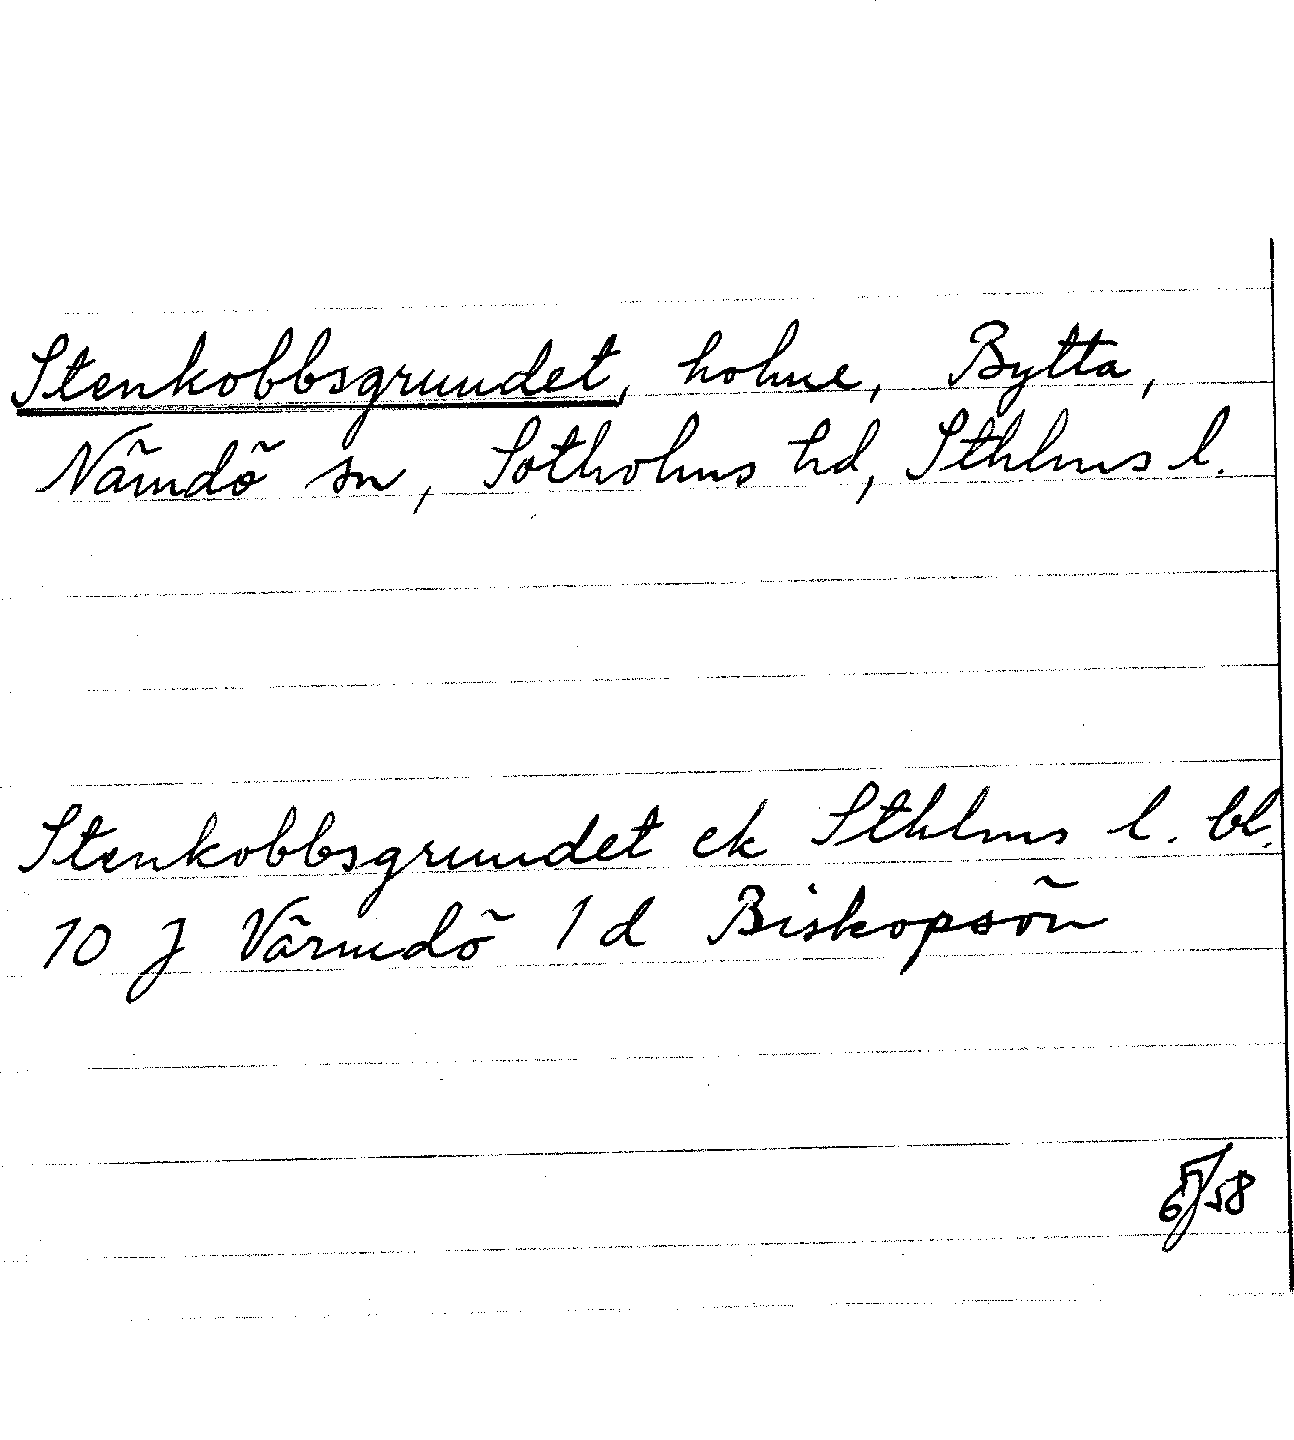 Stenkobbsgrundet, holme, Bytta,
Nämdö sn, Sotholms hd, Sthlms l.
Stenkobbsgrundet ek Sthlms l. bl.
10 J Värmdö 1 d Biskopsön
58